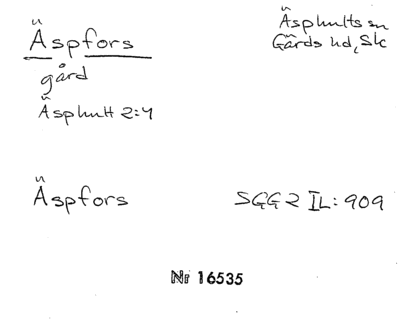 Äspfors
Äsphults sn
Gärds hd, Sk
gård
Äsphult 2:4
Äspfors
SGG 2 IL: 909
Nr 16535